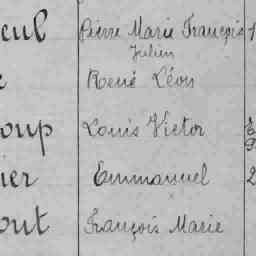 cul Pierre Marie François 1
Julien
René Léon
oup Louis Victor
ier Emmanuel 2
out François Marie